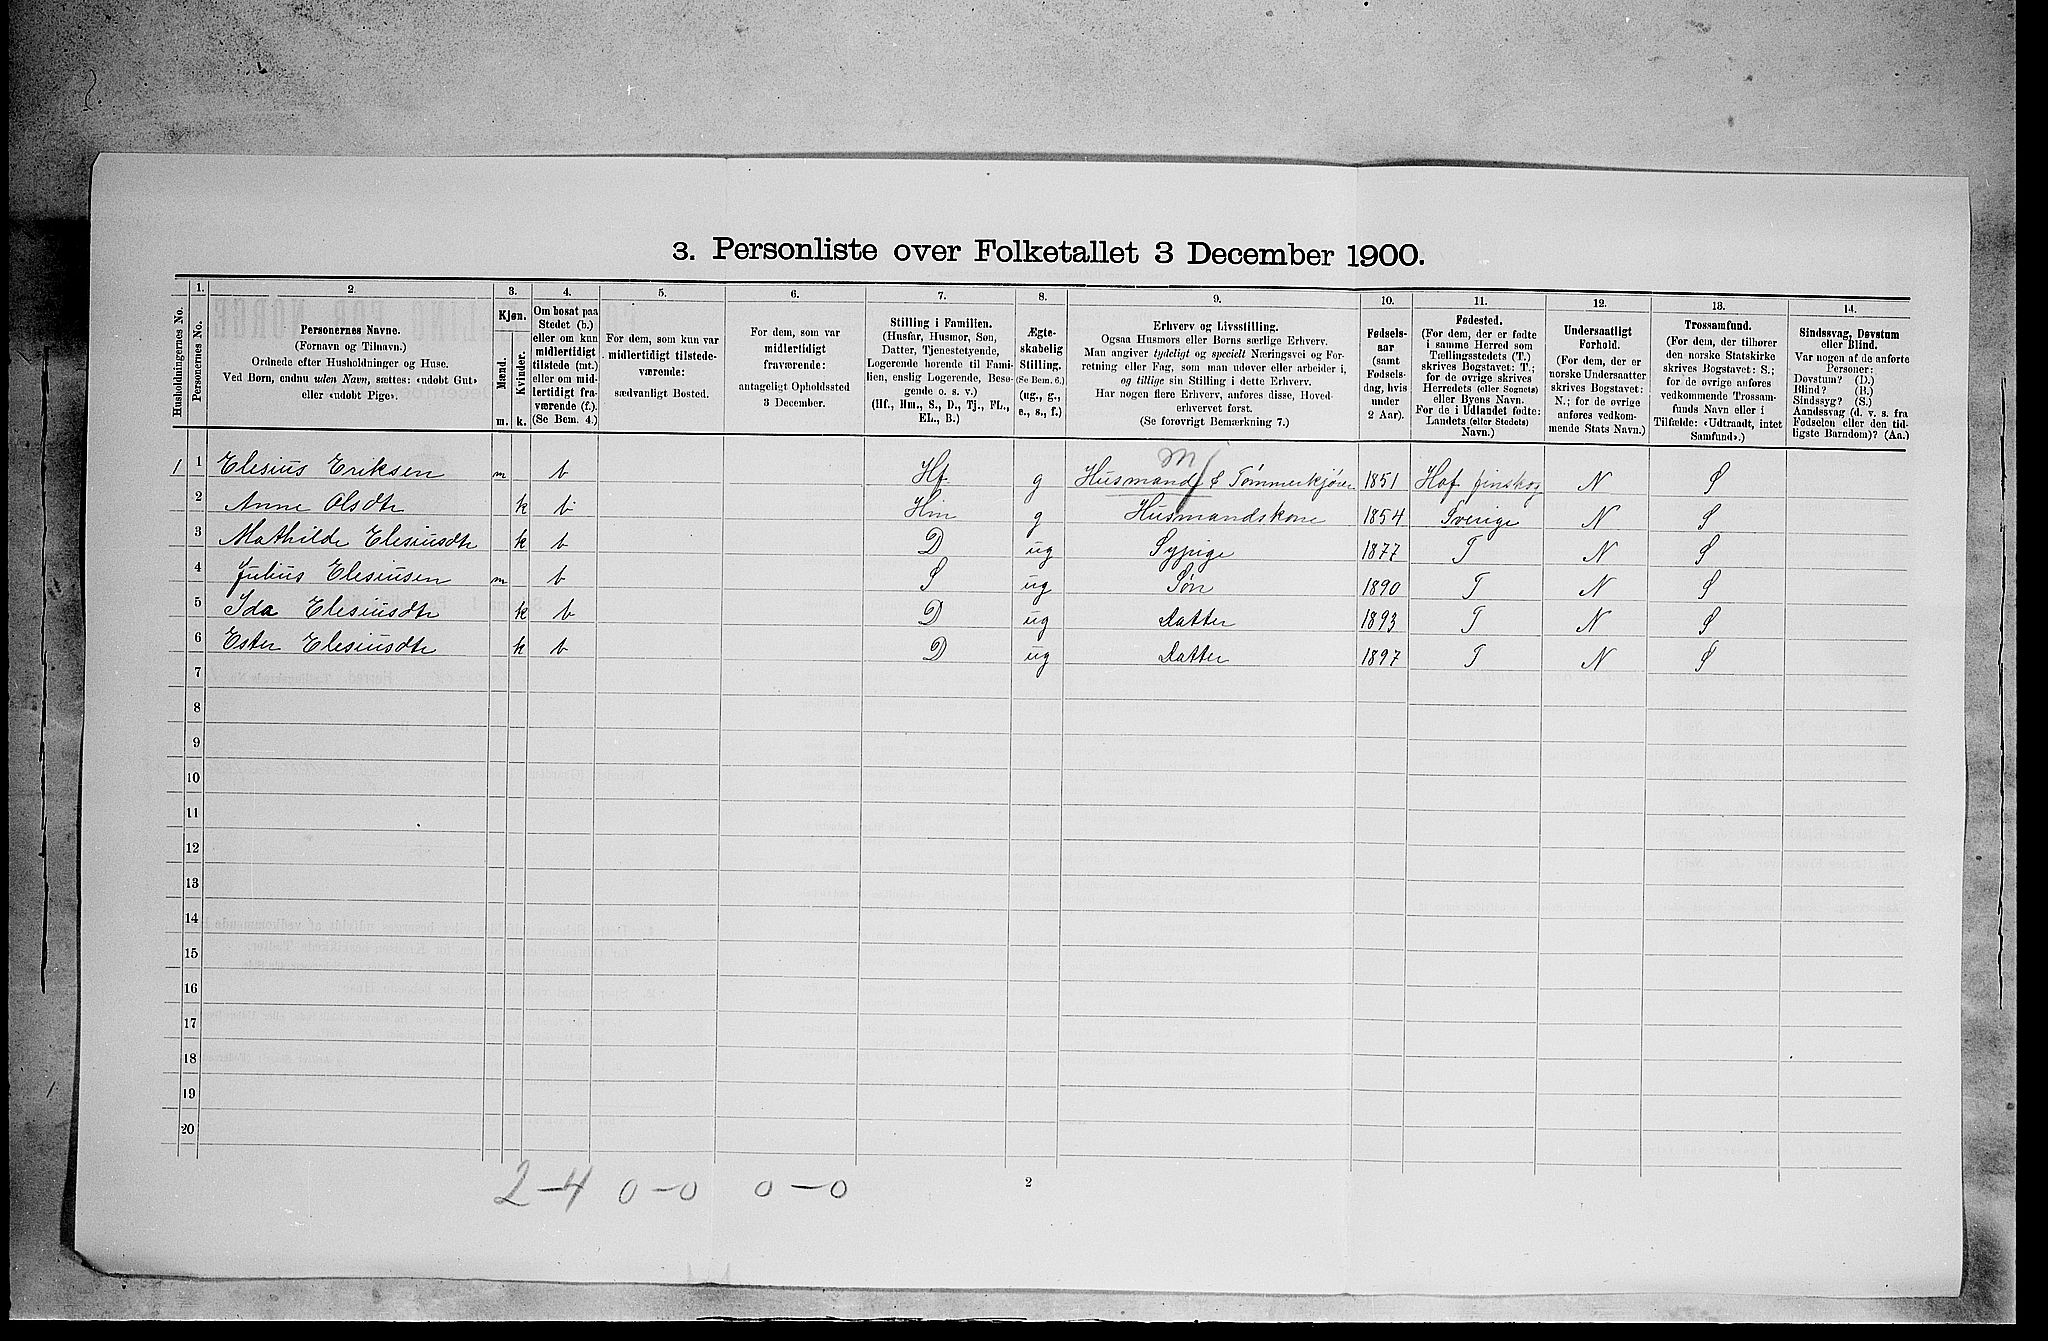 3. Personliste over Folketallet 3 December 1900.
Husholdningernes No.
1.
Personernes No.
2.
Personernes Navne.
(Fornavn og Tilnavn.)
Ordnede efter Husholdninger og Huse.
Ved Børn, endnu uden Navn, sættes: «udøbt Gut»
eller «udøbt Pige».
3.
Kjøn.
Mænd.
Kvinder.
m. k.
4.
Om bosat paa
Stedet (b.)
eller om kun
midlertidigt
tilstede (mt.)
eller om mid-
lertidigt fra-
værende (f.).
(Se Bem. 4.)
5.
For dem, som kun var
midlertidigt tilstede-
værende:
sædvanligt Bosted.
6.
For dem, som var
midlertidigt
fraværende:
antageligt Opholdssted
3 December.
7.
Stilling i Familien.
(Husfar, Husmor, Søn,
Datter, Tjenestetyende,
Logerende hørende til Fami-
lien, enslig Logerende, Besø-
gende o. s. v.)
(Hf., Hm., S., D., Tj., FL.,
EL., B.)
8.
Ægte-
skabelig
Stilling.
(Se Bem. 6.)
(ug., g.,
e., s., f.)
9.
Erhverv og Livsstilling.
Ogsaa Husmors eller Børns særlige Erhverv.
Man angiver tydeligt og specielt Næringsvei og For-
retning eller Fag, som man udøver eller arbeider i,
og tillige sin Stilling i dette Erhverv.
Har nogen flere Erhverv, anføres disse, Hoved-
erhvervet først.
(Se forøvrigt Bemærkning 7.)
10.
Fødsels-
aar
(samt
Fødsels-
dag, hvis
under
2 Aar).
11.
Fødested.
(For dem, der er fødte
i samme Herred som
Tællingsstedets (T.)
skrives Bogstavet: T.;
for de øvrige skrives
Herredets (eller Sognets)
eller Byens Navn.
For de i Udlandet fødte:
Landets (eller Stedets)
Navn.)
12.
Undersaatligt
Forhold.
(For dem, der er
norske Undersaatter
skrives Bogstavet:
N.; for de øvrige
anføres vedkom-
mende Stats Navn.)
13.
Trossamfund.
(For dem, der tilhører
den norske Statskirke
skrives Bogstavet: S.;
for de øvrige anføres
vedkommende Trossam-
funds Navn eller i
Tilfælde: «Udtraadt, intet
Samfund».)
14.
Sindssvag, Døvstum
eller Blind.
Var nogen af de anførte
Personer:
Døvstum? (D.)
Blind? (B.)
Sindssyg? (S.)
Aandssvag (d. v. s. fra
Fødselen eller den tid-
ligste Barndom)? (Aa.)
1 1 Elesius Eriksen m b Hf g Husmand & Tømmerkjører 1851 Hof finskog N S
2 Anne Olsdtr k b Hm g Husmandskone 1854 Sverige N S
3 Mathilde Elesiusdtr k b D ug Sypige 1877 T N S
4 Julius Elesiusen m b S ug Søn 1890 T N S
5 Ida Elesiusdtr k b D ug Datter 1893 T N S
6 Ester Elesiusdtr k b D ug Datter 1897 T N S
7
8
9
10
11
12
13
14
15
16
17
18
19
20
2-4 0-0 0-0
2